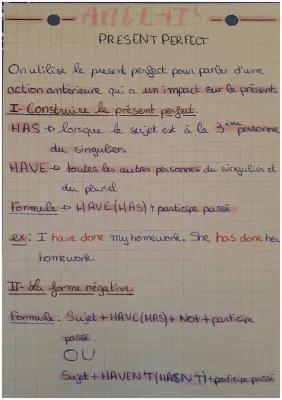 ANGLAIS
PRESENT PERFECT
On utilise le present perfect pour parler d'une
action antérieure qui a un impact sur le présent.
I- Construire le présent perfect.
HAS → lorsque le sujet est à la 3ième personne
du singulier.
HAVE → toutes les autres personnes du singulier et
du pluriel
Formule → HAVE (HAS) + participe passé
ex: I have done my homework. She has done her
homework.
II- La forme négative.
Formule: Sujet + HAVE (HAS) + NOT + participe
passé
OU
Sujet + HAVEN'T (HASN'T) + participe passé